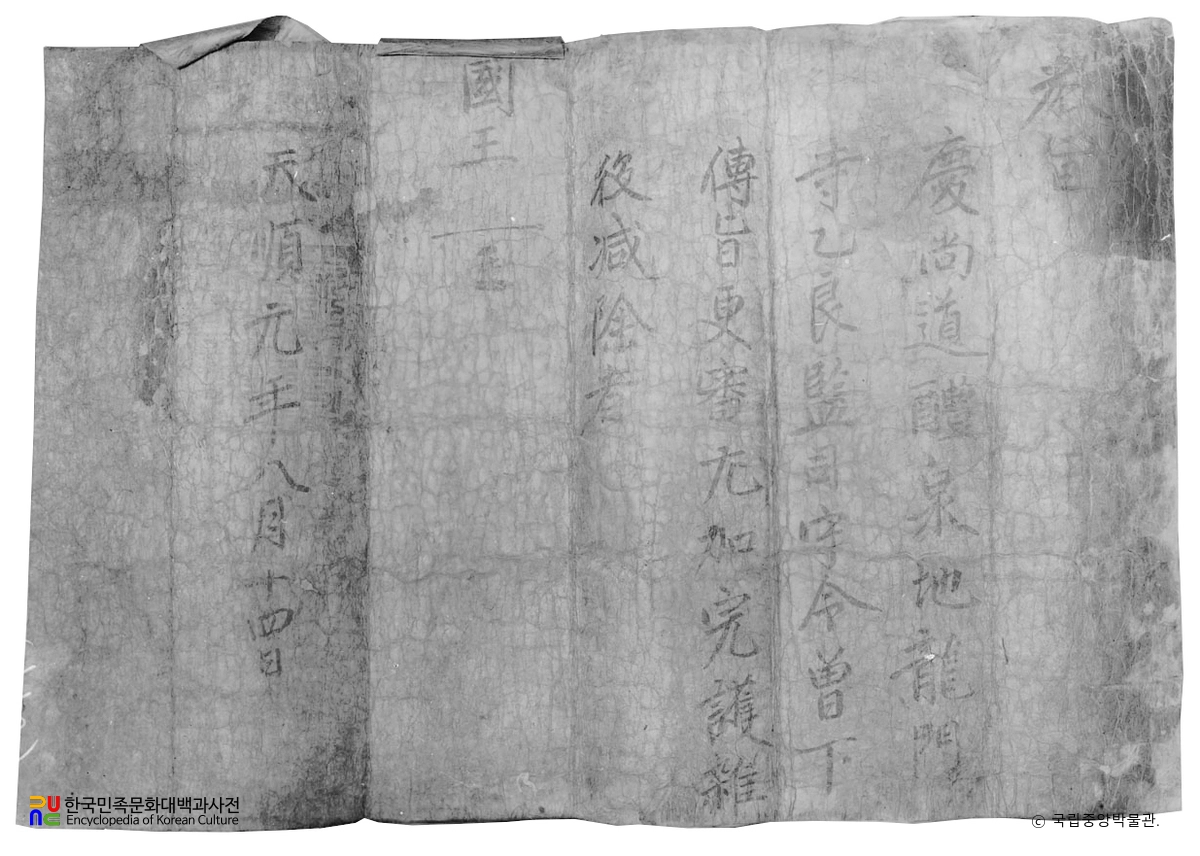 教旨
慶尚道醴泉地龍門
寺乙良監司守令曽下
傳旨更審尤加完護雜
役减除者
國王
天順元年八月十四日
한국민족문화대백과사전
Encyclopedia of Korean Culture
© 국립중앙박물관.